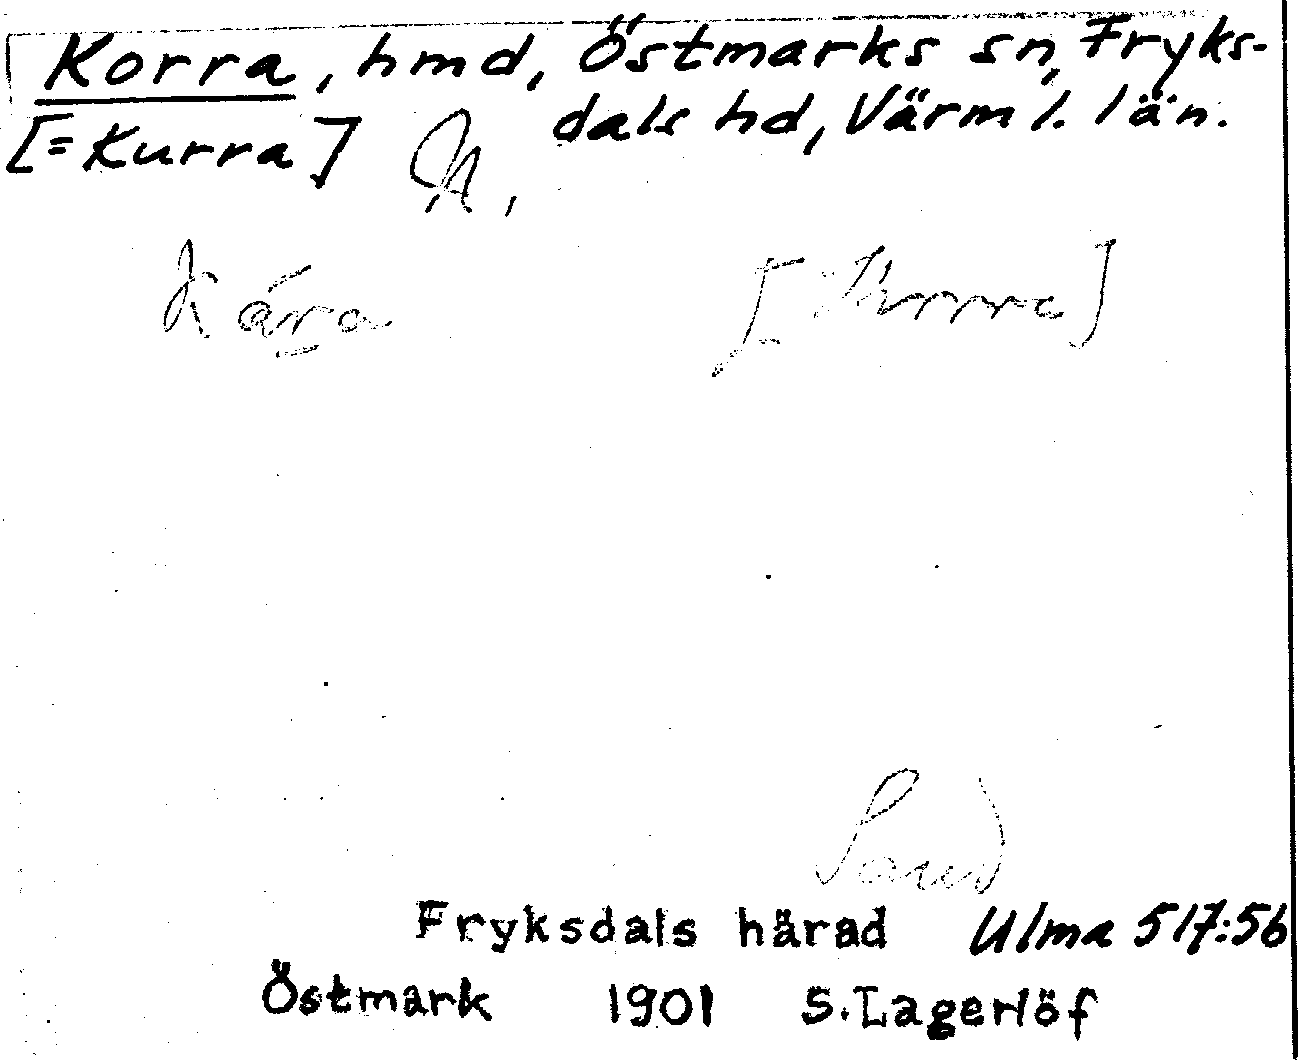 Korra, hmd, Östmarks sn, Fryks-
dals hd, Värml. län.
[= Kurra]
[Kurra]
Fryksdals härad Ulma 517:56
Östmark 1901 S. Lagerlöf